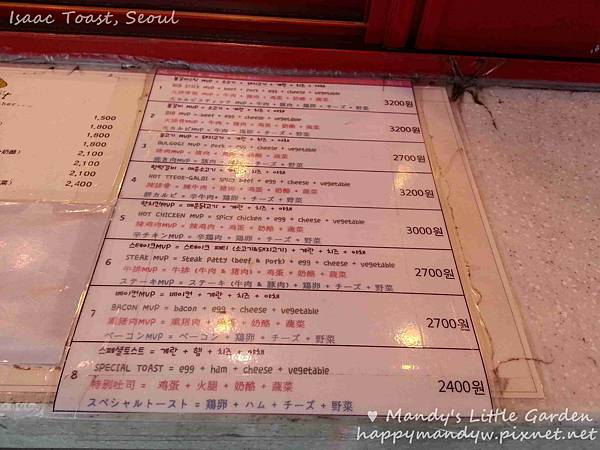 Isaac Toast, Seoul
1,500
1,800
1,800
1,800
2,100
2,100
2,100
2,400
1
BIG STICK MVP = beef + pork + egg + cheese + vegetable
3200원
2
BIB MVP = beef + egg + cheese + vegetable
3200원
3
BULGOGI MVP = Pork + egg + cheese + vegetable
豬肉MVP = 豬肉 + 鷄蛋 + 奶酪 + 蔬菜
2700원
4
HOT TTEOK-GALBI = spicy beef + egg + cheese + vegetable
餅カルビ = 辛牛肉 + 鶏卵 + チーズ + 野菜
3200원
5
HOT CHICKEN MVP = spicy chicken + egg + cheese + vegetable
辣鷄肉MVP = 辣鷄肉 + 鷄蛋 + 奶酪 + 蔬菜
辛チキンMVP = 辛鶏肉 + 鶏卵 + チーズ + 野菜
3000원
6
스테이크MVP = 스테이크 패티 (소고기&돼지고기) + 계란 + 치즈 + 야채
STEAK MVP = Steak Patty (beef & Pork) + egg + cheese + vegetable
牛排MVP = 牛排 (牛肉 & 豬肉) + 鷄蛋 + 奶酪 + 蔬菜
ステーキMVP = ステーキ (牛肉 & 豚肉) + 鶏卵 + チーズ + 野菜
2700원
7
베이컨MVP = 베이컨 + 계란 + 치즈 + 야채
BACON MVP = bacon + egg + cheese + vegetable
熏猪肉MVP = 熏猪肉 + 鷄蛋 + 奶酪 + 蔬菜
ベーコンMVP = ベーコン + 鶏卵 + チーズ + 野菜
2700원
8
스페셜토스트 = 계란 + 햄 + 치즈 + 야채
SPECIAL TOAST = egg + ham + cheese + vegetable
特别吐司 = 鷄蛋 + 火腿 + 奶酪 + 蔬菜
スペシャルトースト = 鶏卵 + ハム + チーズ + 野菜
2400원
♥ Mandy's Little Garden
happymandyw.pixnet.net